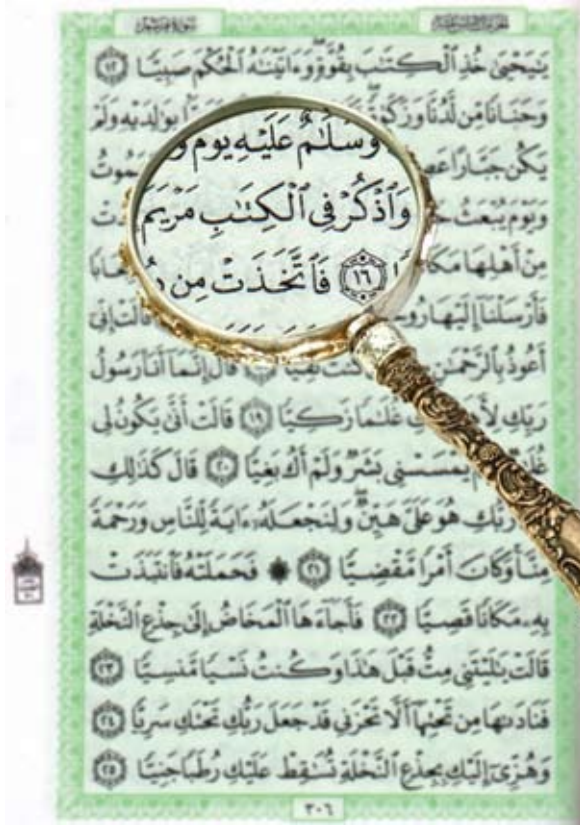 سورة مريم
الجزء السادس عشر
يَٰيَحْيَىٰ خُذِ ٱلْكِتَٰبَ بِقُوَّةٍ وَءَاتَيْنَٰهُ ٱلْحُكْمَ صَبِيًّا ١٢
وَحَنَانًا مِّن لَّدُنَّا وَزَكَوٰةً بِوَٰلِدَيْهِ وَلَمْ
يَكُن جَبَّارًا
وَسَلَٰمٌ عَلَيْهِ يَوْمَ
وَٱذْكُرْ فِى ٱلْكِتَٰبِ مَرْيَمَ
١٦ فَٱتَّخَذَتْ مِن
وَيَوْمَ يُبْعَثُ
مِنْ أَهْلِهَا
فَأَرْسَلْنَآ إِلَيْهَا قَالَتْ إِنِّىٓ
أَعُوذُ بِٱلرَّحْمَٰنِ كُنتَ تَقِيًّا قَالَ إِنَّمَآ أَنَا۠ رَسُولُ
رَبِّكِ غُلَٰمًا زَكِيًّا ١٩ قَالَتْ أَنَّىٰ يَكُونُ لِى
يَمْسَسْنِى بَشَرٌ وَلَمْ أَكُ بَغِيًّا ٢٠ قَالَ كَذَٰلِكِ
رَبُّكِ هُوَ عَلَىَّ هَيِّنٌ وَلِنَجْعَلَهُۥٓ ءَايَةً لِّلنَّاسِ وَرَحْمَةً
مِّنَّا وَكَانَ أَمْرًا مَّقْضِيًّا ٢١ ۞ فَحَمَلَتْهُ فَٱنتَبَذَتْ
بِهِۦ مَكَانًا قَصِيًّا ٢٢ فَأَجَآءَهَا ٱلْمَخَاضُ إِلَىٰ جِذْعِ ٱلنَّخْلَةِ
قَالَتْ يَٰلَيْتَنِى مِتُّ قَبْلَ هَٰذَا وَكُنتُ نَسْيًا مَّنسِيًّا ٢٣
فَنَادَىٰهَا مِن تَحْتِهَآ أَلَّا تَحْزَنِى قَدْ جَعَلَ رَبُّكِ تَحْتَكِ سَرِيًّا ٢٤
وَهُزِّىٓ إِلَيْكِ بِجِذْعِ ٱلنَّخْلَةِ تُسَٰقِطْ عَلَيْكِ رُطَبًا جَنِيًّا ٢٥
٣٠٦